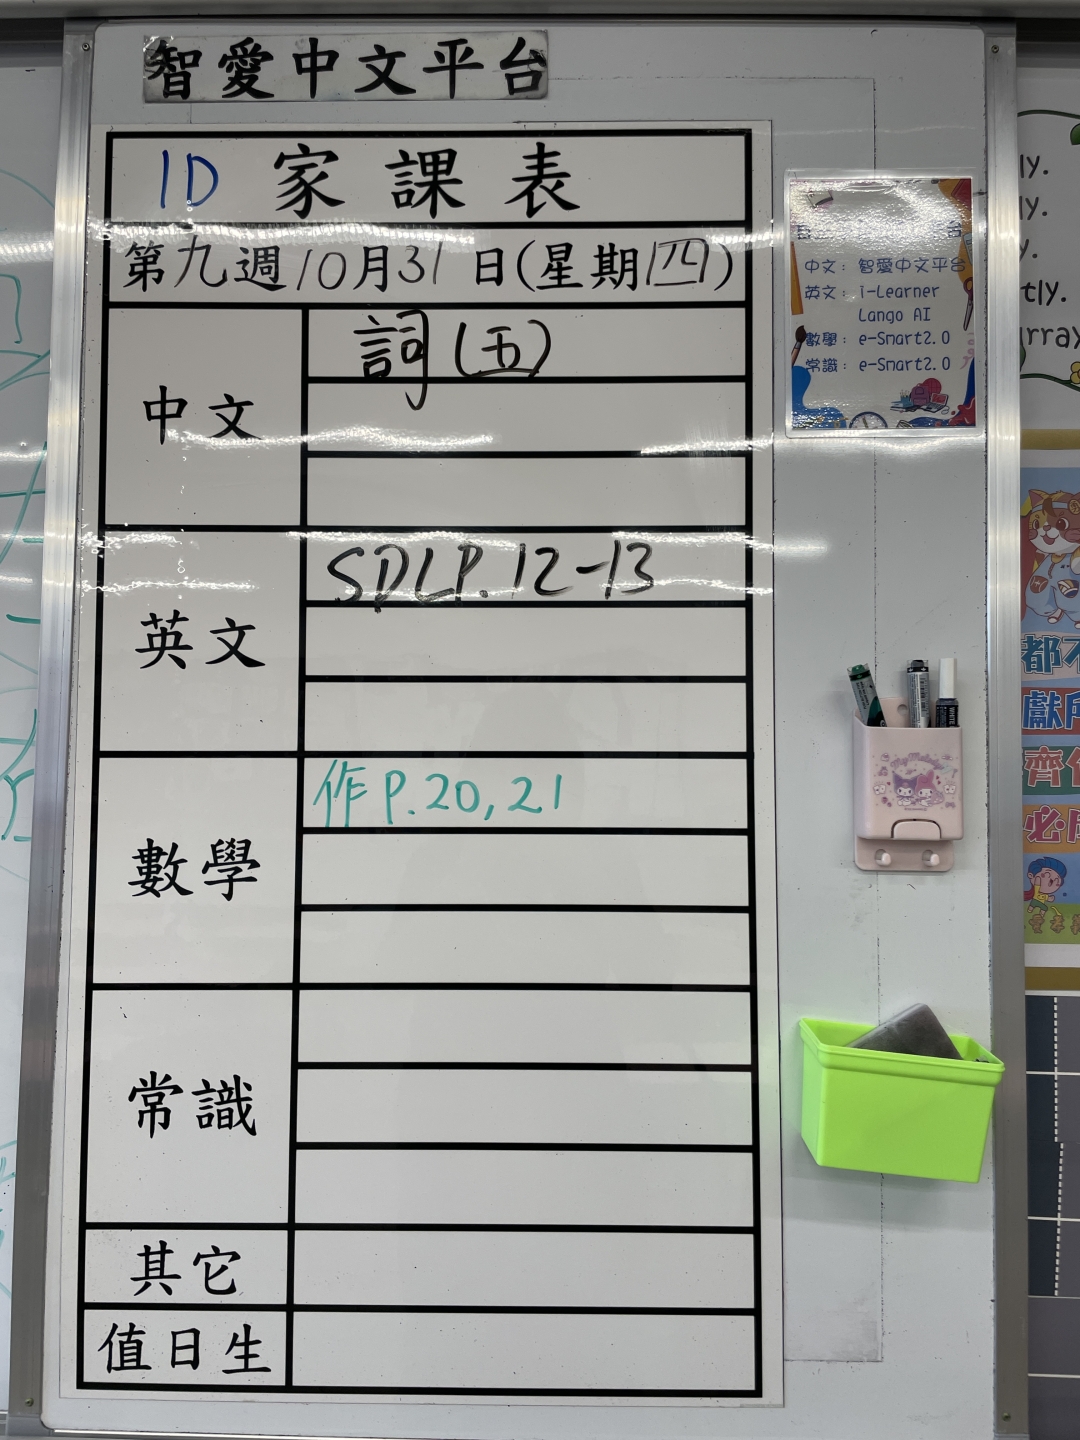 智愛中文平台
1D 家課表
第九週10月31日(星期四)
中文
詞(五)
英文
SDL P.12-13
數學
作 P.20,21
常識
其它
值日生
中文：智愛中文平台
英文：i-Learner
Lango AI
數學：e-Smart2.0
常識：e-Smart2.0
ly.
ly.
y.
tly.
都不
獻
齊
必